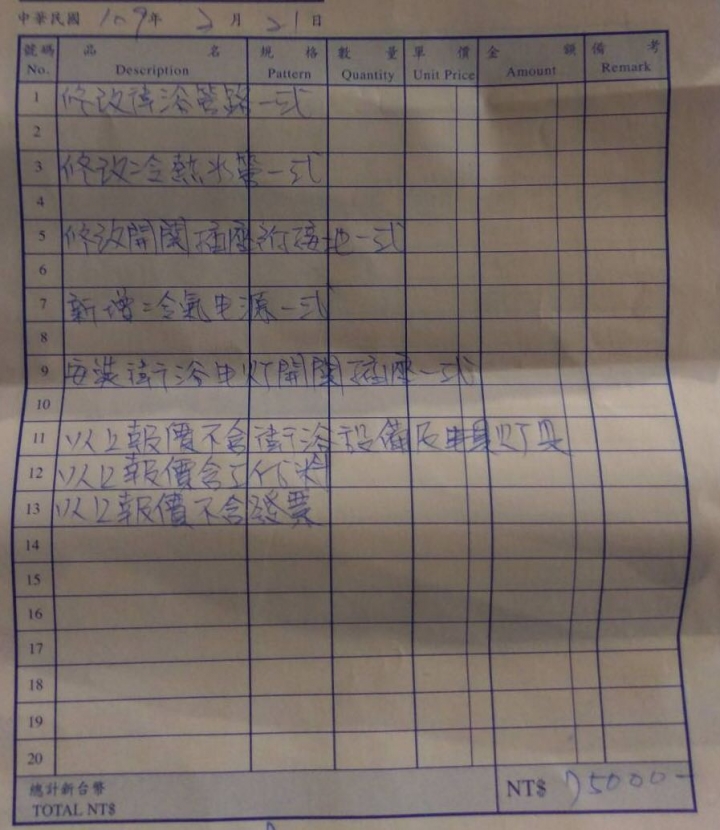 中華民國 109年 2月 21日
號碼 品名 規格 數量 單價 金額 備考
No. Description Pattern Quantity Unit Price Amount Remark
1 修改衛浴管路一式
2
3 修改冷熱水管一式
4
5 修改開關插座 接地一式
6
7 新增冷氣电源一式
8
9 安裝衛浴电灯開關插座一式
10
11 以上報價不含衛浴設備及 灯具
12 以上報價含工代料
13 以上報價不含發票
14
15
16
17
18
19
20
總計新台幣
TOTAL NT$ NT$ 75000-